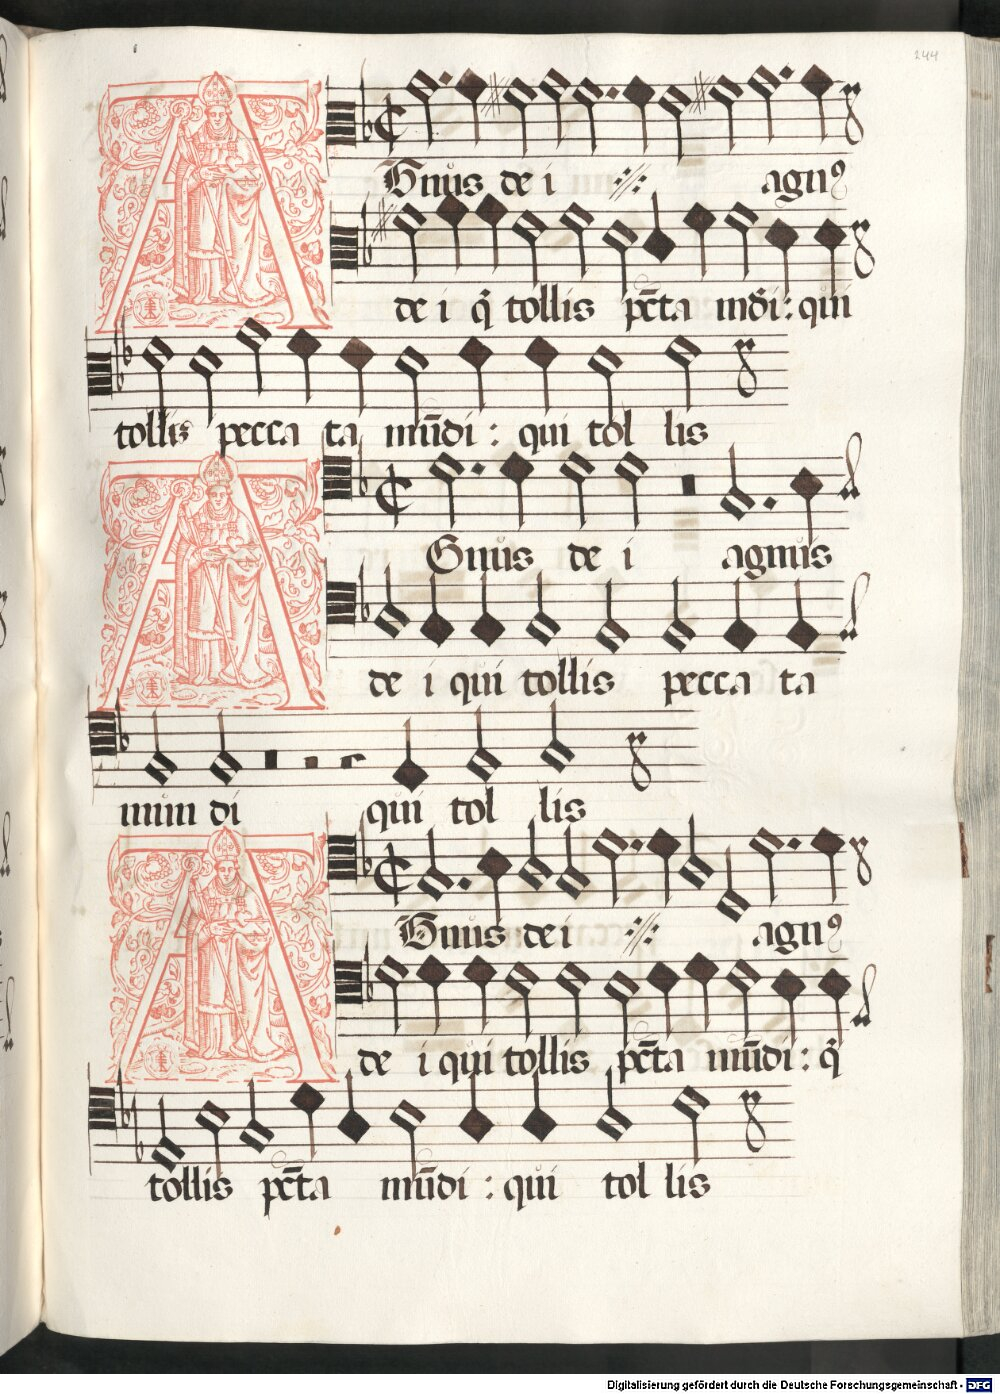 244
AGnus de i ·//· agnꝰ
de i q̃ tollis pc̃ta mũdi: qui
tollis pecca ta mũdi: qui tol lis
AGnus de i agnus
de i qui tollis pecca ta
mun di qui tol lis
AGnus de i ·//· agnꝰ
de i qui tollis pc̃ta mũdi: q̃
tollis pc̃ta mũdi: qui tol lis
Digitalisierung gefördert durch die Deutsche Forschungsgemeinschaft - DFG